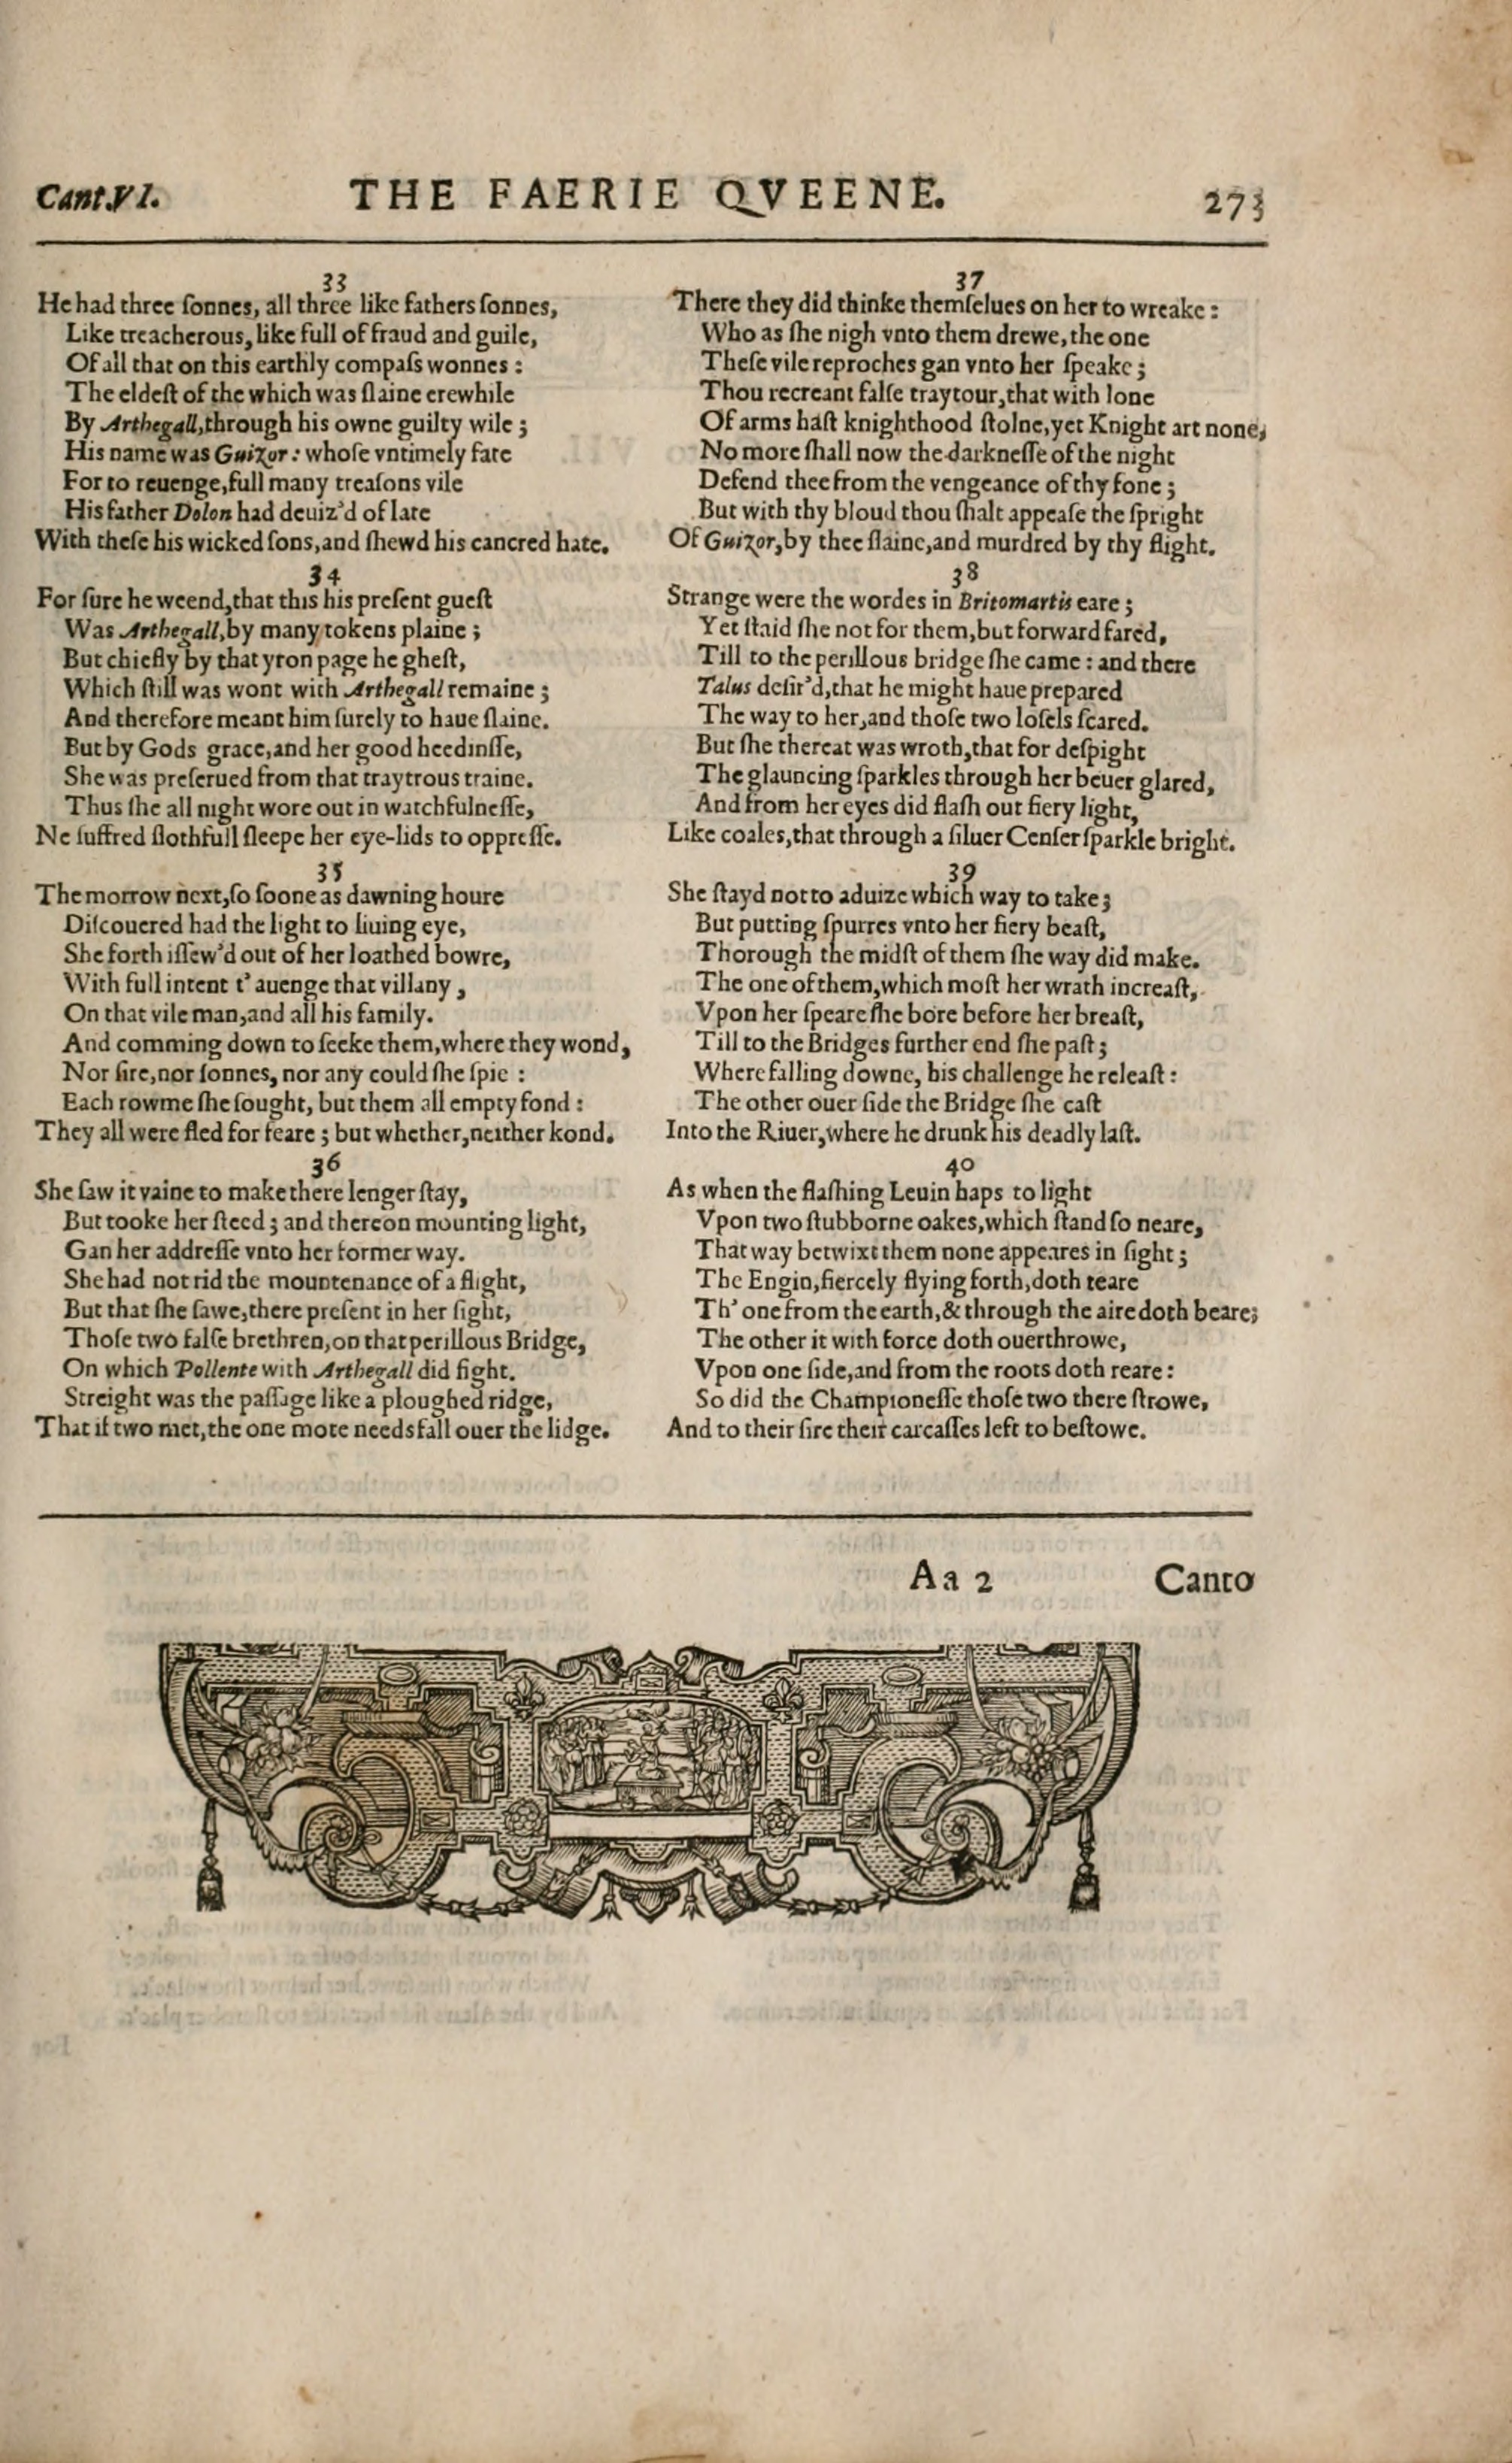 Cant.VI. THE FAERIE QVEENE. 273
33
He had three ſonnes, all three like fathers ſonnes,
Like treacherous, like full of fraud and guile,
Of all that on this earthly compaſs wonnes :
The eldeſt of the which was ſlaine erewhile
By Arthegall, through his owne guilty wile ;
His name was Guizor : whoſe vntimely fate
For to reuenge, full many treaſons vile
His father Dolon had deuiz'd of late
With theſe his wicked ſons, and ſhewd his cancred hate.
34
For ſure he weend, that this his preſent gueſt
Was Arthegall, by many tokens plaine ;
But chiefly by that yron page he gheſt,
Which ſtill was wont with Arthegall remaine ;
And therefore meant him ſurely to haue ſlaine.
But by Gods grace, and her good heedinſſe,
She was preſerued from that traytrous traine.
Thus ſhe all night wore out in watchfulneſſe,
Ne ſuffred ſlothfull ſleepe her eye-lids to oppreſſe.
35
The morrow next, ſo ſoone as dawning houre
Diſcouered had the light to liuing eye,
She forth iſſew'd out of her loathed bowre,
With full intent t' auenge that villany ,
On that vile man, and all his family.
And comming down to ſeeke them, where they wond,
Nor ſire, nor ſonnes, nor any could ſhe ſpie :
Each rowme ſhe ſought, but them all empty fond :
They all were fled for feare ; but whether, neither kond.
36
She ſaw it vaine to make there lenger ſtay,
But tooke her ſteed ; and thereon mounting light,
Gan her addreſſe vnto her former way.
She had not rid the mountenance of a flight,
But that ſhe ſawe, there preſent in her ſight,
Thoſe two falſe brethren, on that perillous Bridge,
On which Pollente with Arthegall did fight.
Streight was the paſſage like a ploughed ridge,
That if two met, the one mote needs fall ouer the lidge.
37
There they did thinke themſelues on her to wreake :
Who as ſhe nigh vnto them drewe, the one
Theſe vile reproches gan vnto her ſpeake ;
Thou recreant falſe traytour, that with lone
Of arms haſt knighthood ſtolne, yet Knight art none,
No more ſhall now the darkneſſe of the night
Defend thee from the vengeance of thy fone ;
But with thy bloud thou ſhalt appeaſe the ſpright
Of Guizor, by thee ſlaine, and murdred by thy ſlight.
38
Strange were the wordes in Britomartis eare ;
Yet ſtaid ſhe not for them, but forward fared,
Till to the perillous bridge ſhe came : and there
Talus deſir'd, that he might haue prepared
The way to her, and thoſe two loſels ſcared.
But ſhe thereat was wroth, that for deſpight
The glauncing ſparkles through her beuer glared,
And from her eyes did flaſh out fiery light,
Like coales, that through a ſiluer Cenſer ſparkle bright.
39
She ſtayd not to aduize which way to take ;
But putting ſpurres vnto her fiery beaſt,
Thorough the midſt of them ſhe way did make.
The one of them, which moſt her wrath increaſt,
Vpon her ſpeare ſhe bore before her breaſt,
Till to the Bridges further end ſhe paſt ;
Where falling downe, his challenge he releaſt :
The other ouer ſide the Bridge ſhe caſt
Into the Riuer, where he drunk his deadly laſt.
40
As when the flaſhing Leuin haps to light
Vpon two ſtubborne oakes, which ſtand ſo neare,
That way betwixt them none appeares in ſight ;
The Engin, fiercely flying forth, doth teare
Th' one from the earth, & through the aire doth beare;
The other it with force doth ouerthrowe,
Vpon one ſide, and from the roots doth reare :
So did the Championeſſe thoſe two there ſtrowe,
And to their ſire their carcaſſes left to beſtowe.
Aa 2 Canto